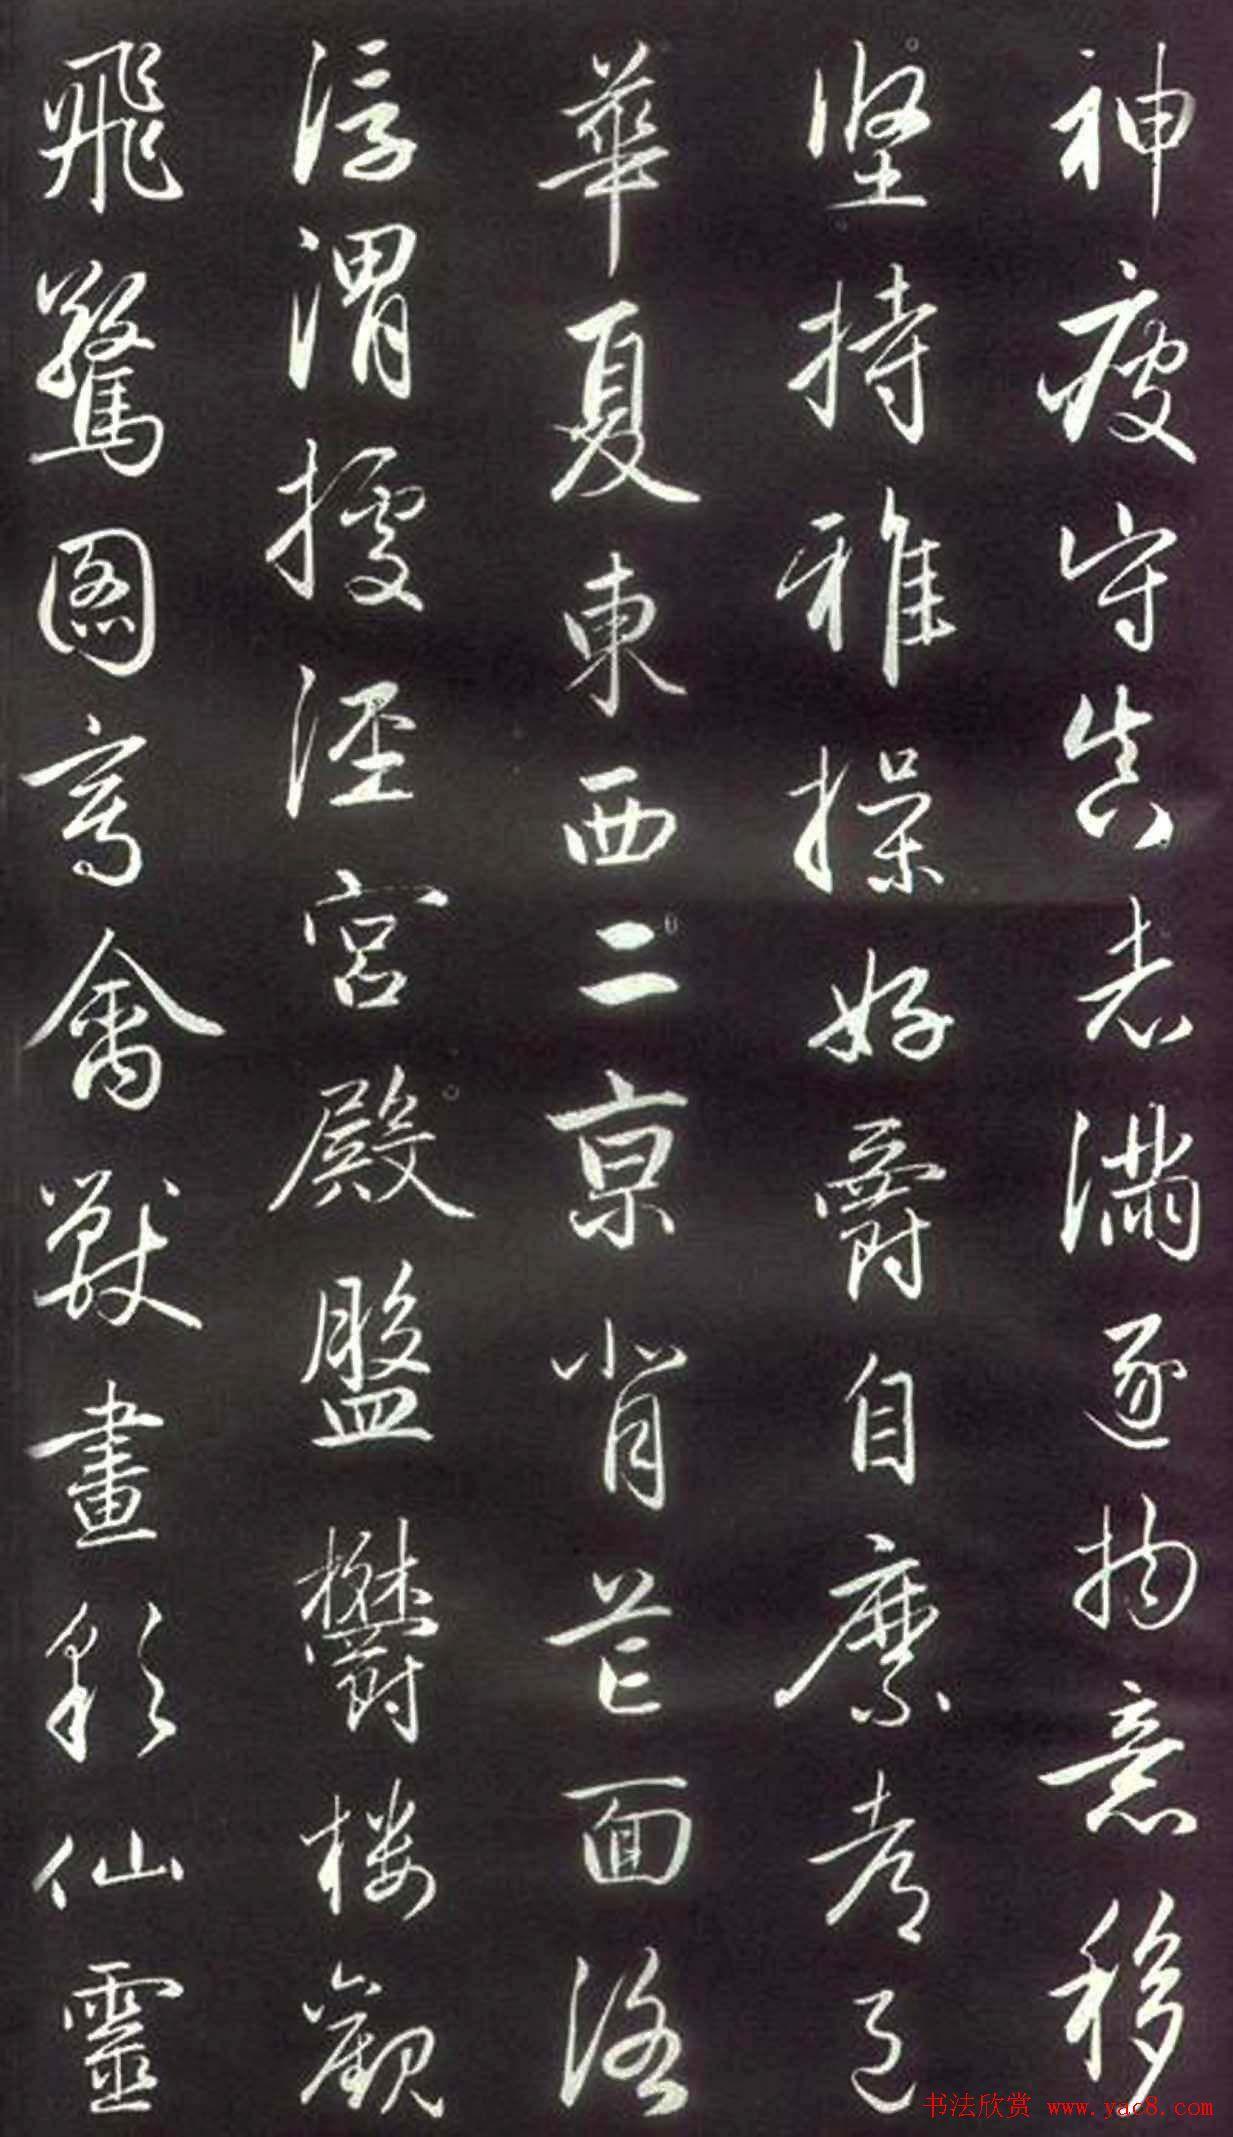 神疲守真志滿逐物意移
堅持雅操好爵自縻都邑
華夏東西二京背芒面洛
浮渭據涇宮殿盤鬱樓觀
飛驚圖寫禽獸畫彩仙靈
书法欣赏 www.yac8.com